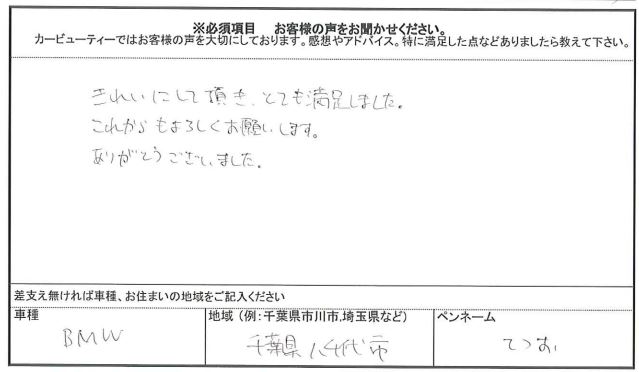 ※必須項目　お客様の声をお聞かせください。
カービューティーではお客様の声を大切にしております。感想やアドバイス。特に満足した点などありましたら教えて下さい。
きれいにして頂き、とても満足しました。
これからもよろしくお願いします。
ありがとうございました。
差支え無ければ車種、お住まいの地域をご記入ください
車種　地域（例：千葉県市川市,埼玉県など）　ペンネーム
BMW　千葉県八千代市　てつお